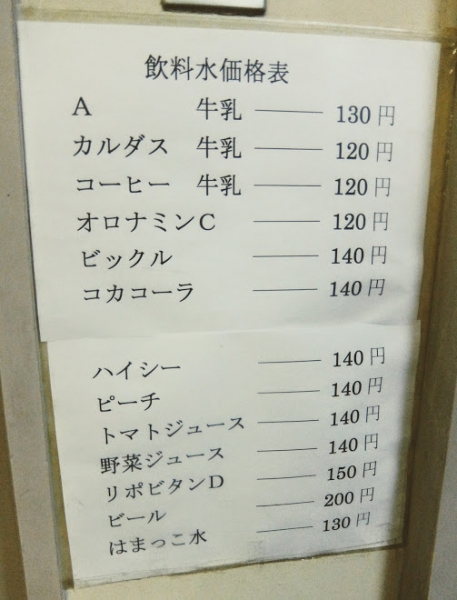 飲料水価格表
A 牛乳 ——— 130円
カルダス 牛乳 ——— 120円
コーヒー 牛乳 ——— 120円
オロナミンC ——— 120円
ビックル ——— 140円
コカコーラ ——— 140円
ハイシー ——— 140円
ピーチ ——— 140円
トマトジュース ——— 140円
野菜ジュース ——— 140円
リポビタンD ——— 150円
ビール ——— 200円
はまっこ水 ——— 130円